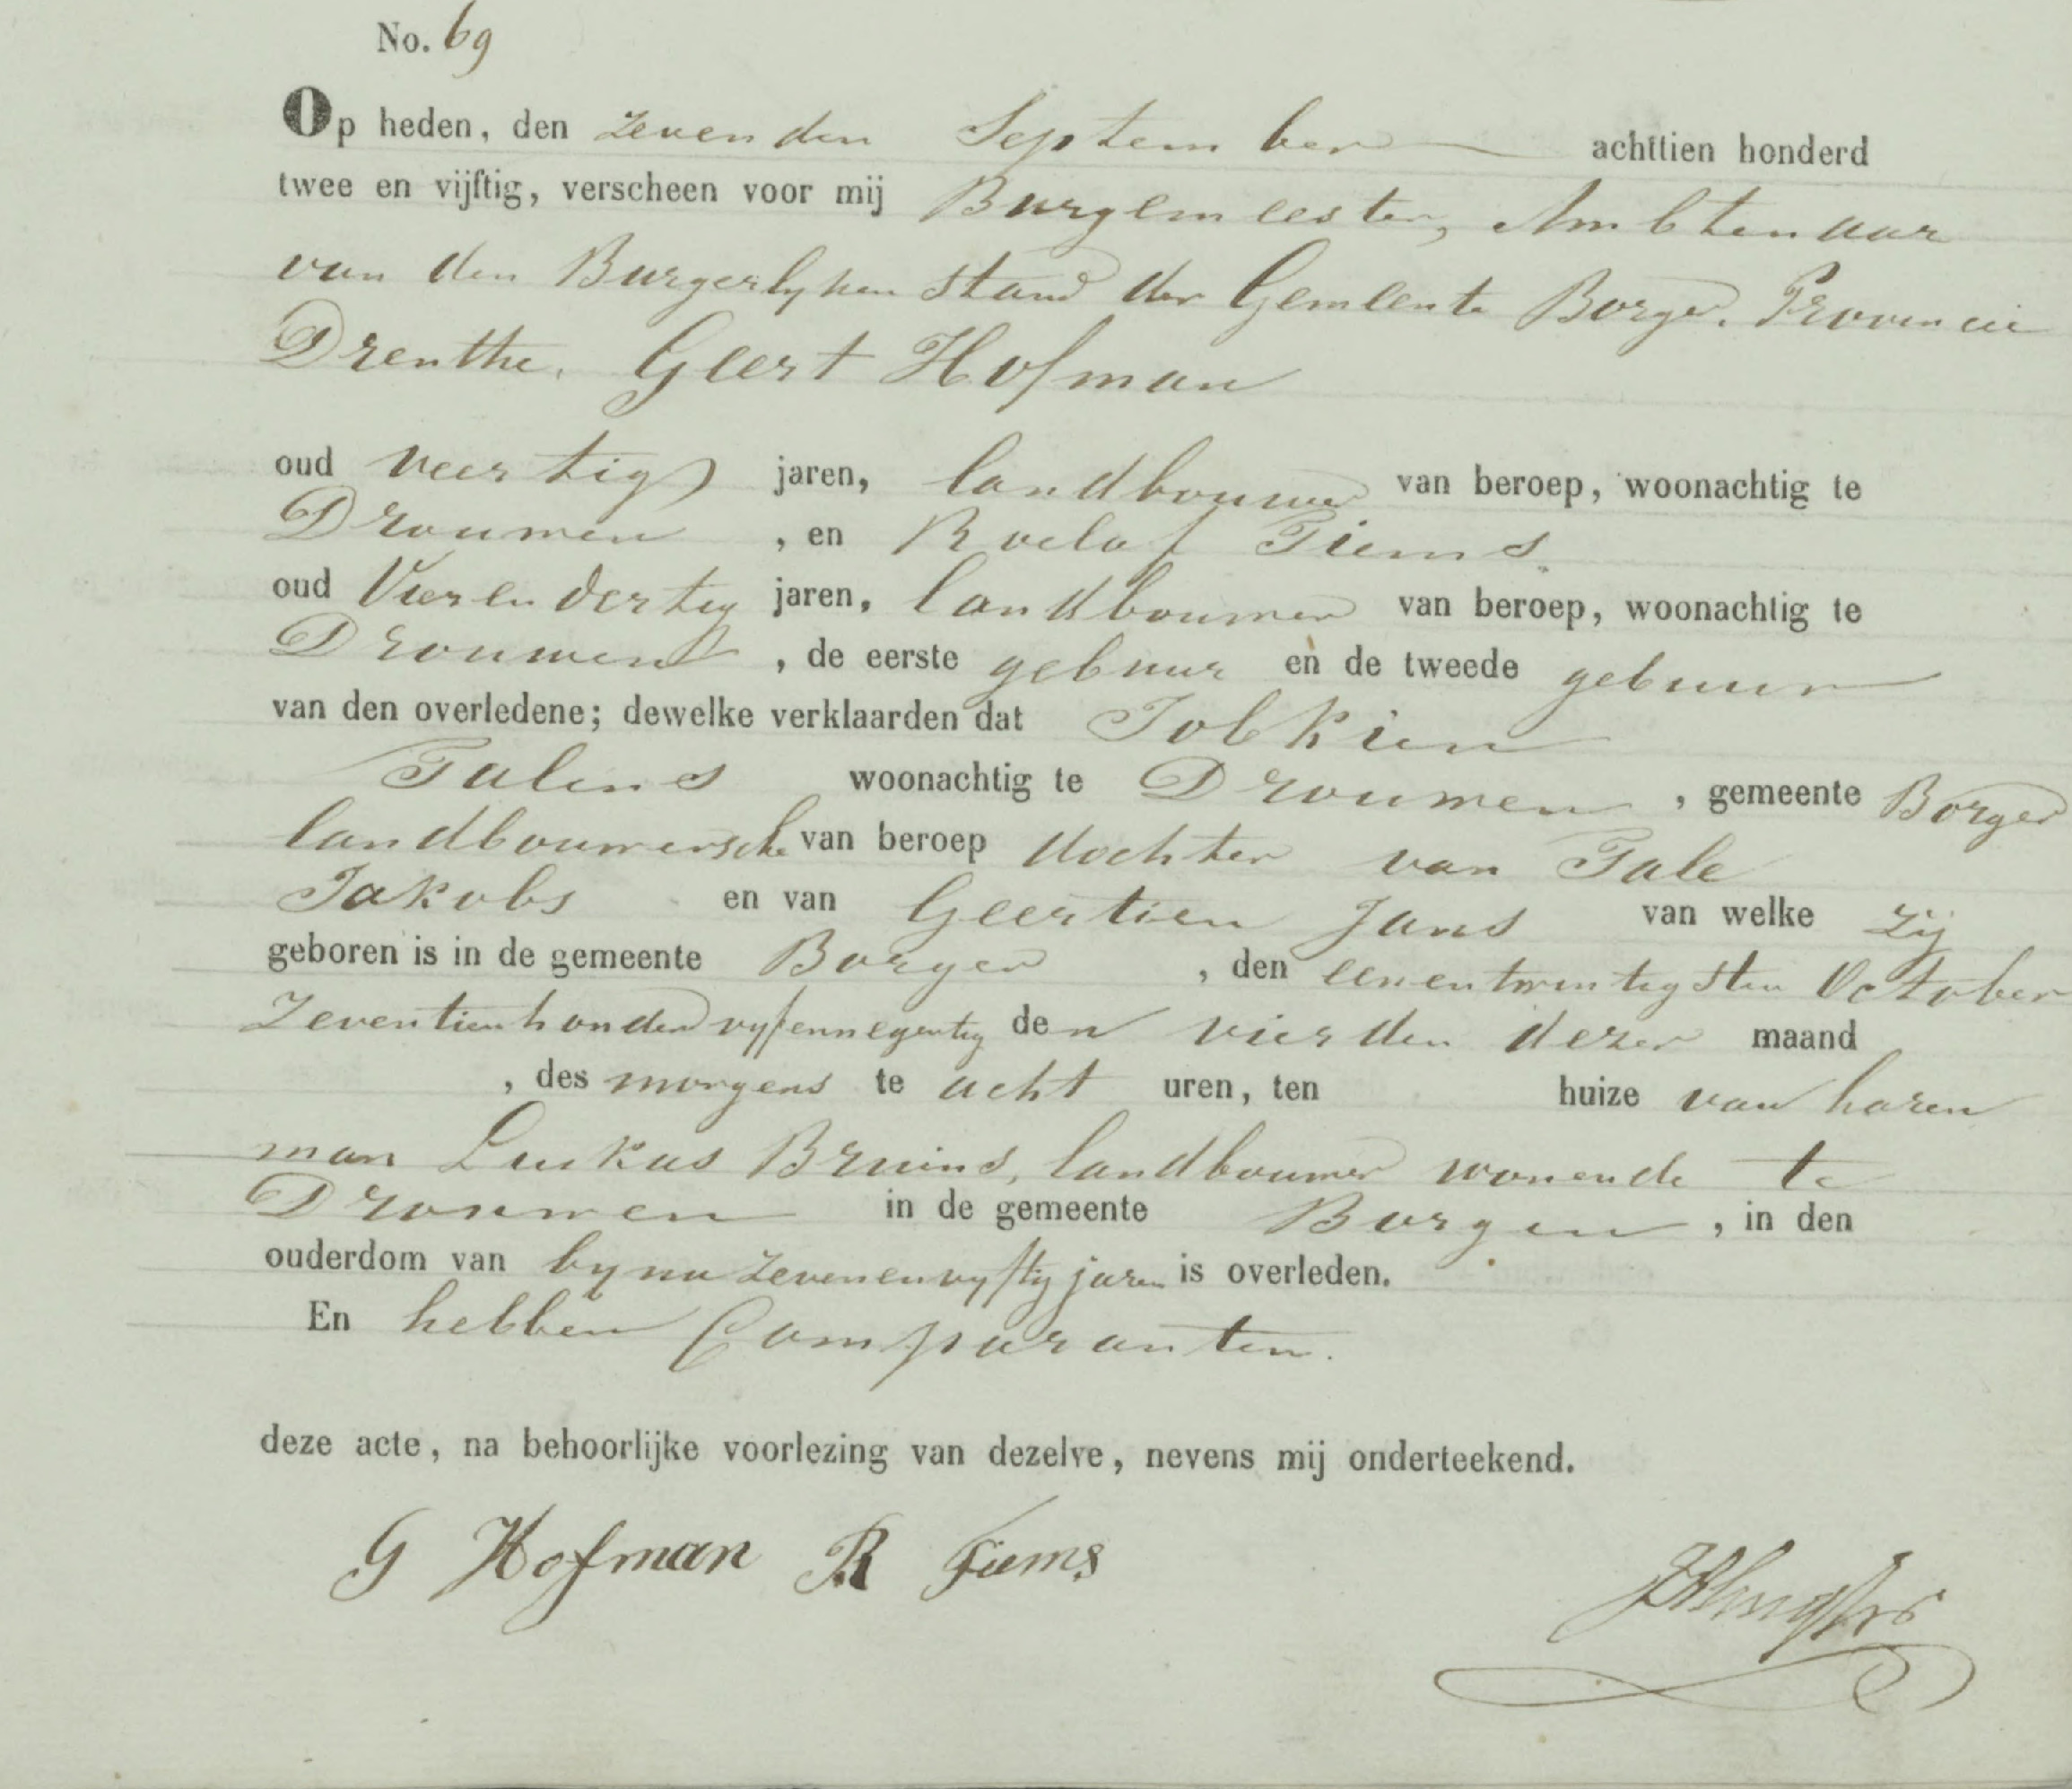 No. 69
Op heden, den zevenden September achttien honderd
twee en vijftig, verscheen voor mij Burgemeester, Ambtenaar
van den Burgerlyken stand der Gemeente Borger. Provincie
Drenthe. Geert Hofman
oud veertig jaren, landbouwer van beroep, woonachtig te
Drouwen , en Roelof Tiems.
oud Vier en dertig jaren, landbouwer van beroep, woonachtig te
Drouwen , de eerste gebuur en de tweede gebuur
van den overledene; dewelke verklaarden dat Jobkien
Talens woonachtig te Drouwen , gemeente Borger
landbouwersche van beroep dochter van Tale
Jakobs en van Geertien Jans van welke zij
geboren is in de gemeente Borger , den eenentwintigsten October
Zeventienhonderd vyfennegentig den vierden dezer maand
, des morgens te acht uren, ten huize van haren
man Luikas Bruins, landbouwer wonende te
Drouwen in de gemeente Borger , in den
ouderdom van byna zevenenvyftig jaren is overleden.
En hebben Comparanten.
deze acte, na behoorlijke voorlezing van dezelve, nevens mij onderteekend.
G Hofman R Tiems